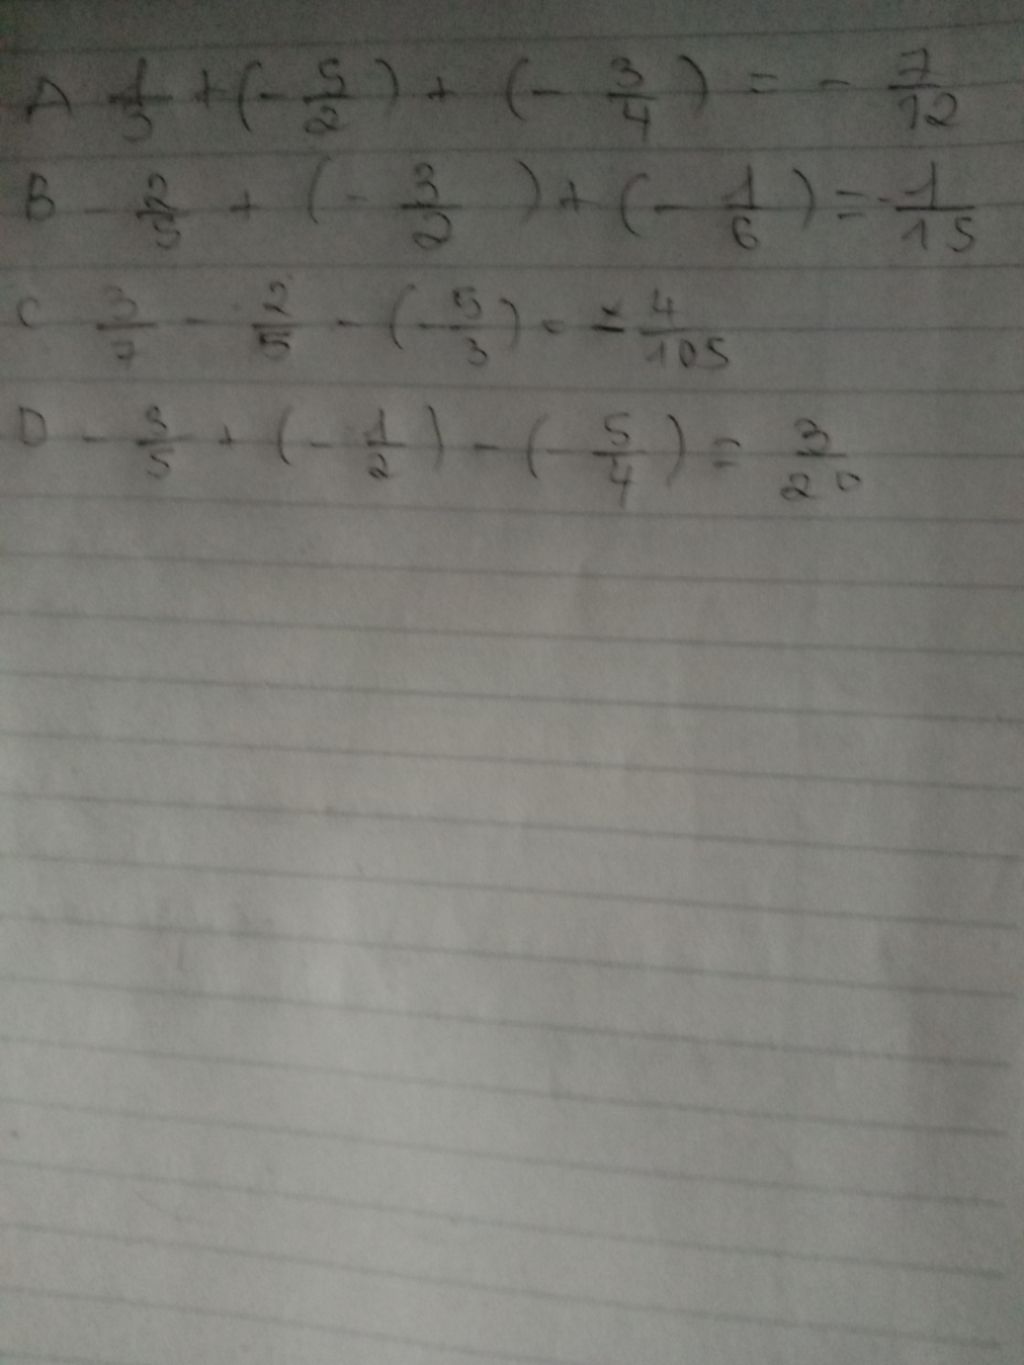 A 1/3 + (- 5/2) + (- 3/4) = - 7/12
B - 2/5 + (- 3/2) + (- 1/6) = - 1/15
C 3/7 - 2/5 - (- 5/3) = - 4/105
D - 3/5 + (- 1/2) - (- 5/4) = 3/20